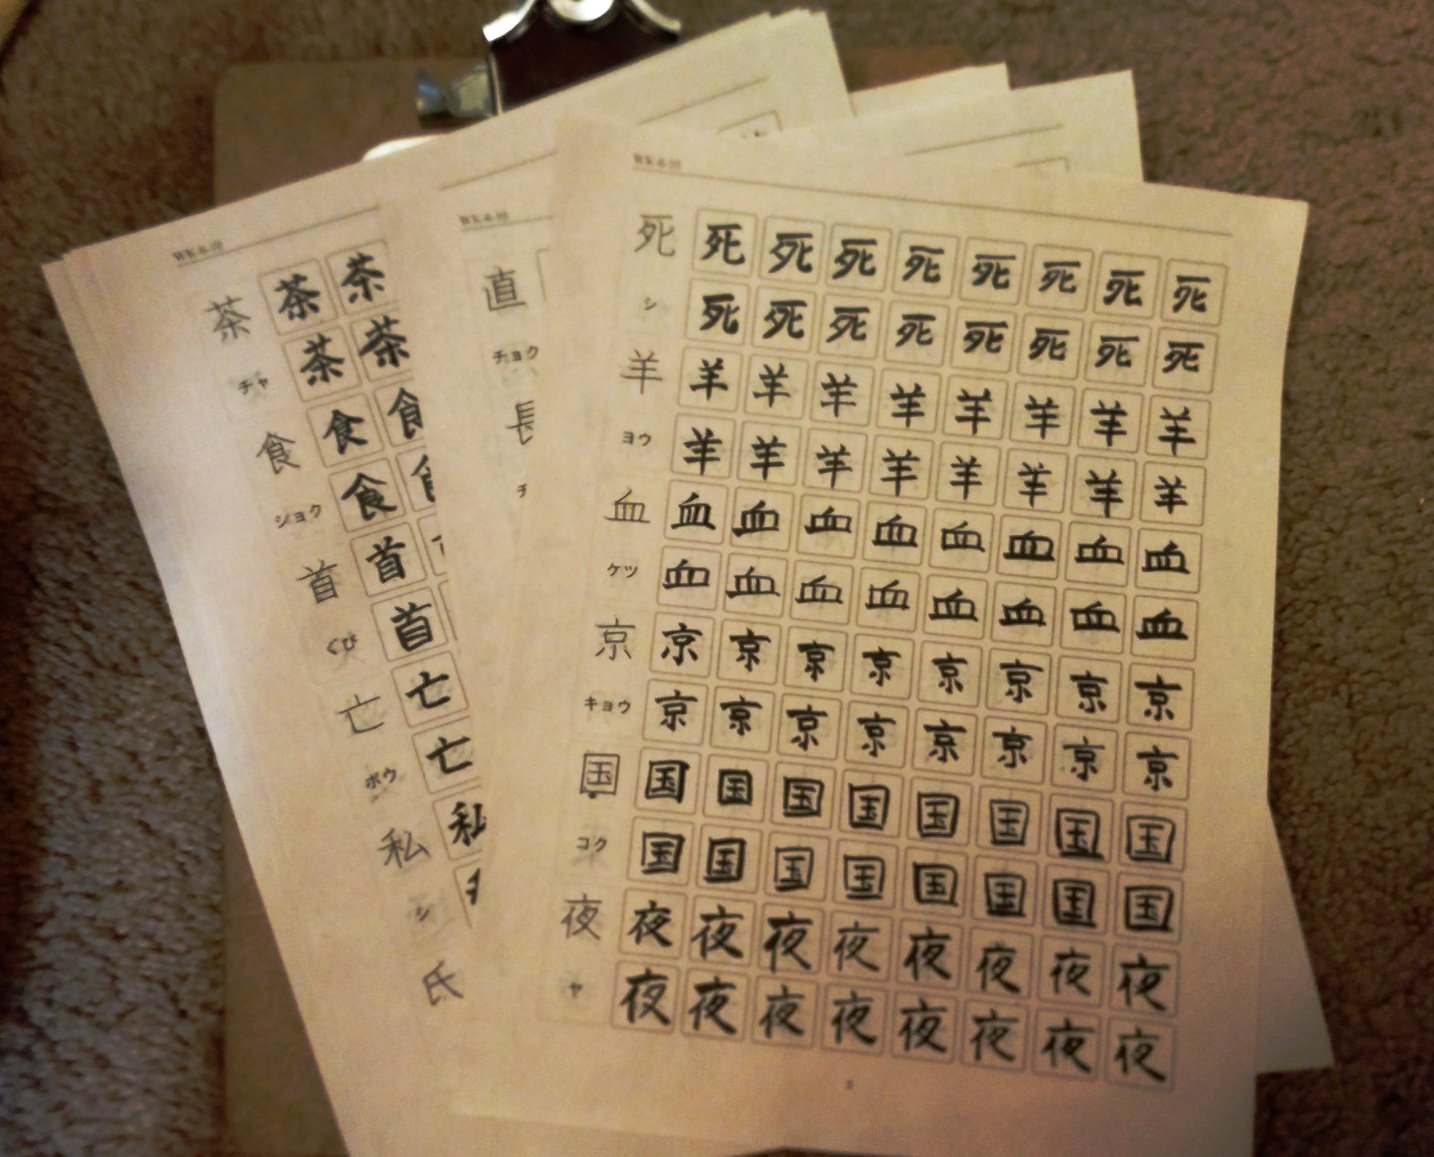 茶 茶 茶
チャ 茶 茶
食 食 食
ショク 食 食
首 首
くび 首
亡 亡
ボウ 亡
私 私
シ
氏
直
チョク
長
死 死 死 死 死 死 死 死 死
シ 死 死 死 死 死 死 死 死
羊 羊 羊 羊 羊 羊 羊 羊 羊
ヨウ 羊 羊 羊 羊 羊 羊 羊 羊
血 血 血 血 血 血 血 血 血
ケツ 血 血 血 血 血 血 血 血
京 京 京 京 京 京 京 京 京
キョウ 京 京 京 京 京 京 京 京
国 国 国 国 国 国 国 国 国
コク 国 国 国 国 国 国 国 国
夜 夜 夜 夜 夜 夜 夜 夜 夜
ヤ 夜 夜 夜 夜 夜 夜 夜 夜